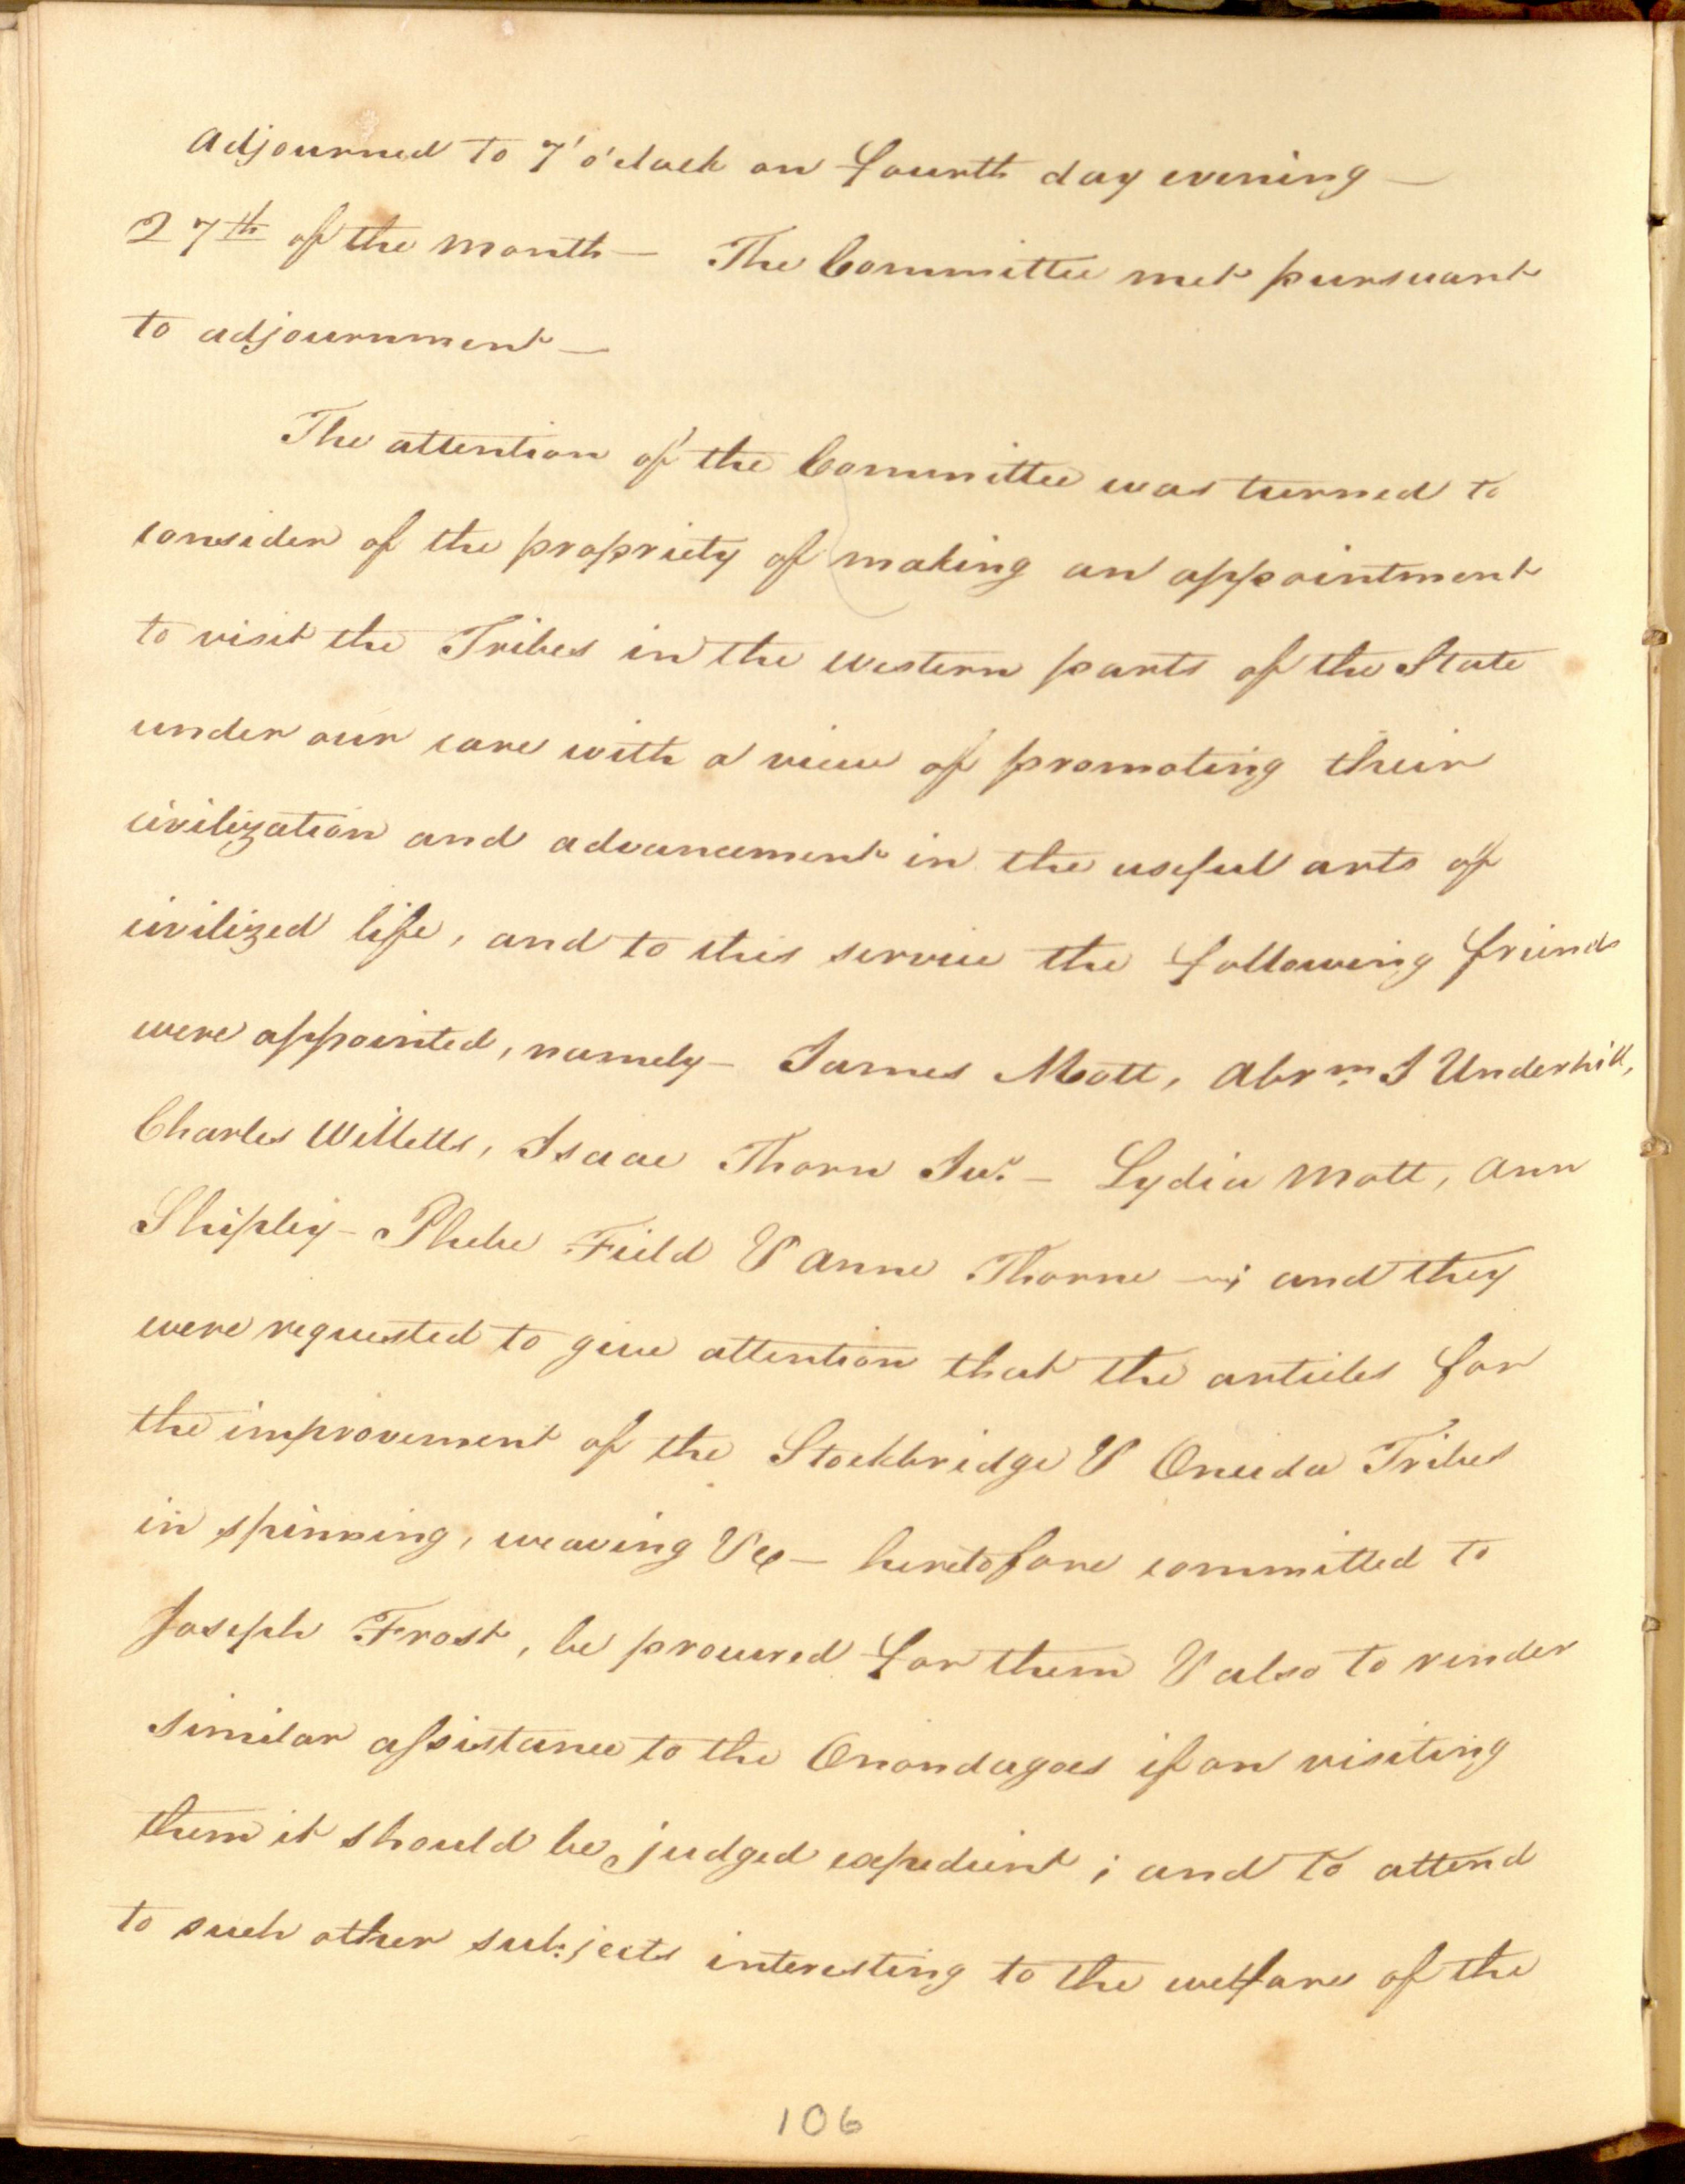 adjourned to 7 o'clock on fourth day evening —
27th of the month — The Committee met pursuant
to adjournment —
The attention of the Committee was turned to
consider of the propriety of making an appointment
to visit the Tribes in the western parts of the State
under our care with a view of promoting their
civilization and advancement in the useful arts of
civilized life, and to this service the following friends
were appointed, namely — James Mott, Abrm. I Underhill,
Charles Willetts, Isaac Thorn Jur. — Lydia Mott, Ann
Shipley — Phebe Field & Anne Thorne —; and they
were requested to give attention that the articles for
the improvement of the Stockbridge & Oneida Tribes
in spinning, weaving &c — heretofore committed to
Joseph Frost, be procured for them & also to render
similar assistance to the Onondagoes if on visiting
them it should be judged expedient; and to attend
to such other subjects interesting to the welfare of the
106